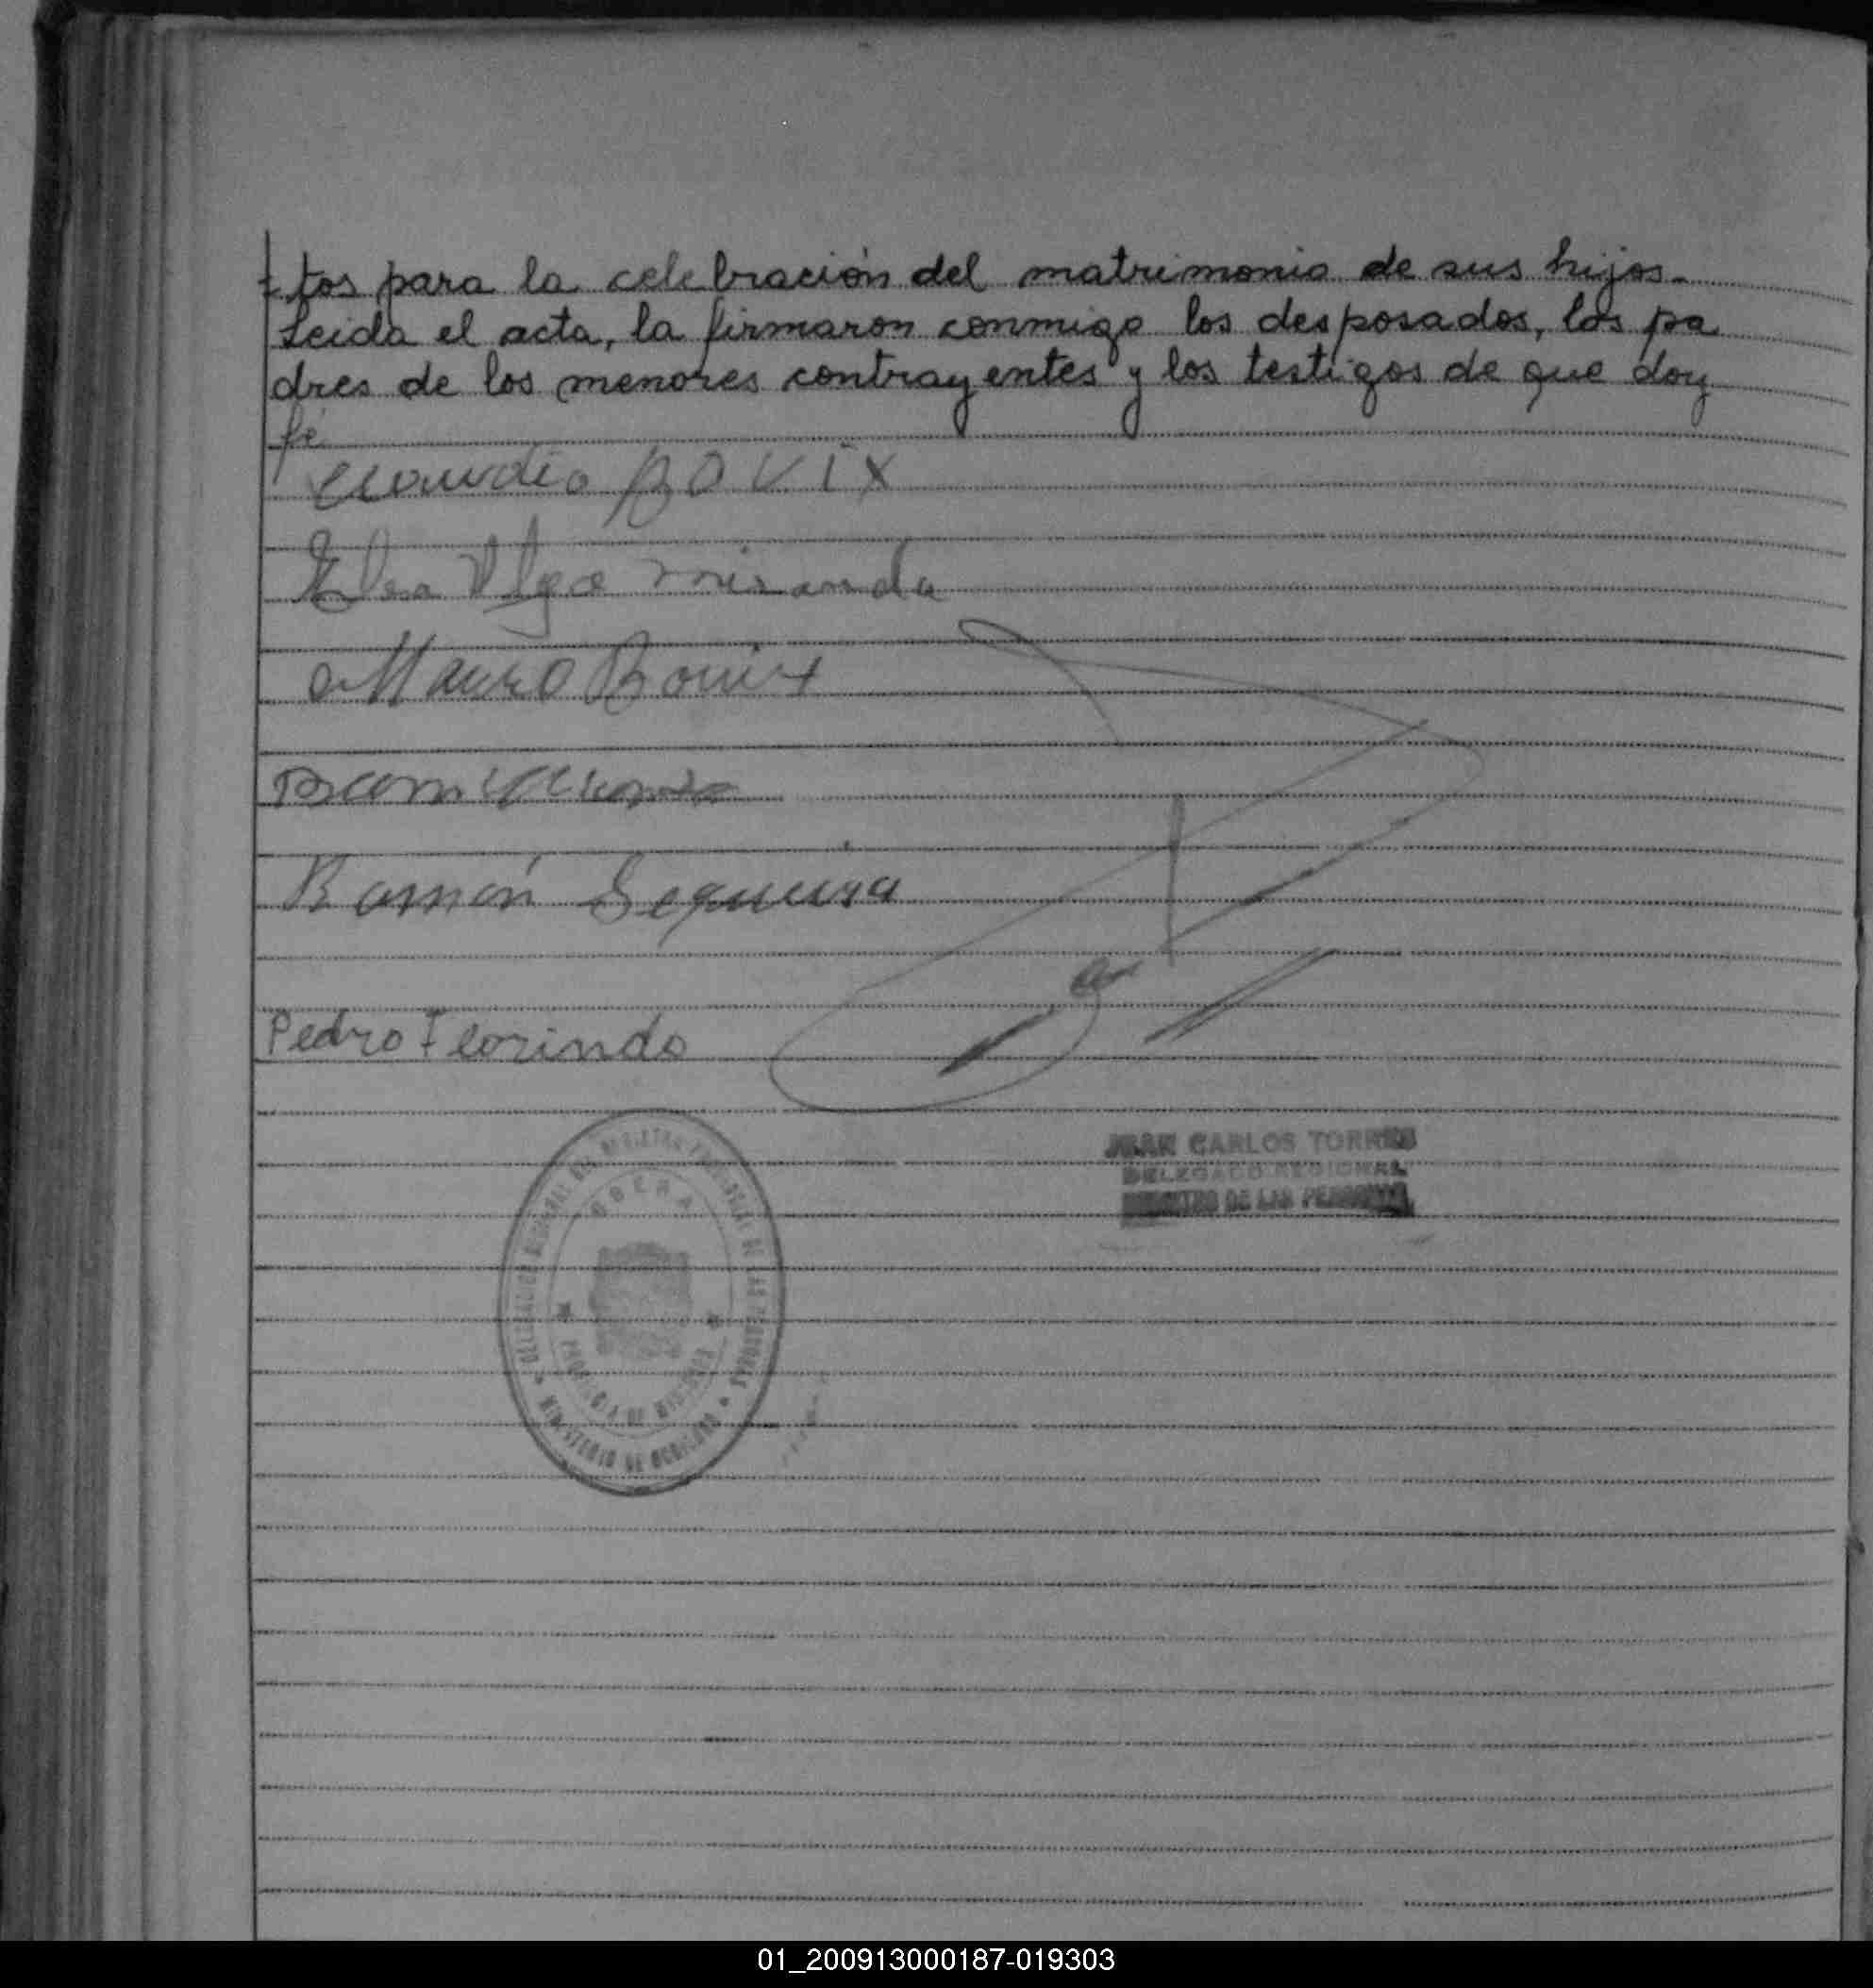 tos para la celebración del matrimonio de sus hijos.
Leida el acta, la firmaron conmigo los desposados, los pa
dres de los menores contrayentes y los testigos de que doy
fé
Claudio BOVIX
Elsa Olga miranda
Mauro Bovix
Ramón Sequeira
Pedro Florindo
JUAN CARLOS TORRES
DELEGADO REGIONAL
REGISTRO DE LAS PERSONAS
DELEGACION REGIONAL DEL REGISTRO PROVINCIAL DE LAS PERSONAS
OBERA
PROVINCIA DE MISIONES
MINISTERIO DE GOBIERNO
01_200913000187-019303